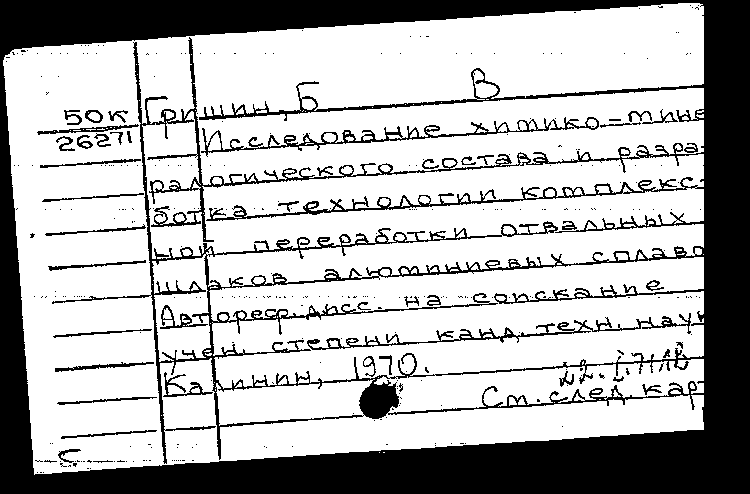 50к Гришин, Б В
26271 Исследование химико=мине
ралогического состава и разра-
ботка технологии комплекс-
ной переработки отвальных
шлаков алюминиевых сплаво
Автореф. дисс. на соискание
учен. степени канд. техн. наук
Калинин, 1970.
22.I.71ЛВ
См. след. карт
С